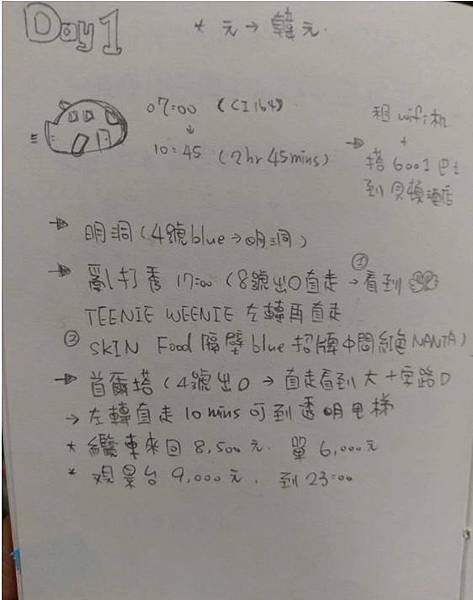 Day 1
* 元 → 韓元.
07:00 (CI 164)
↓
10:45 (2hr 45mins)
租 wifi机
+
→ 搭 6001 巴士
到 貝頓酒店
→ 明洞 (4號 blue → 明洞)
→ 亂打秀 17:00 (8號出口直走 → ① 看到
TEENIE WEENIE 左轉再直走
② SKIN Food 隔壁 blue 招牌中間綠色 NANTA)
→ 首爾塔 (4號出口 → 直走看到大十字路口
→ 左轉直走 10 mins 可到透明電梯
* 纜車來回 8,500元. 單 6,000元
* 观景台 9,000元. 到 23:00